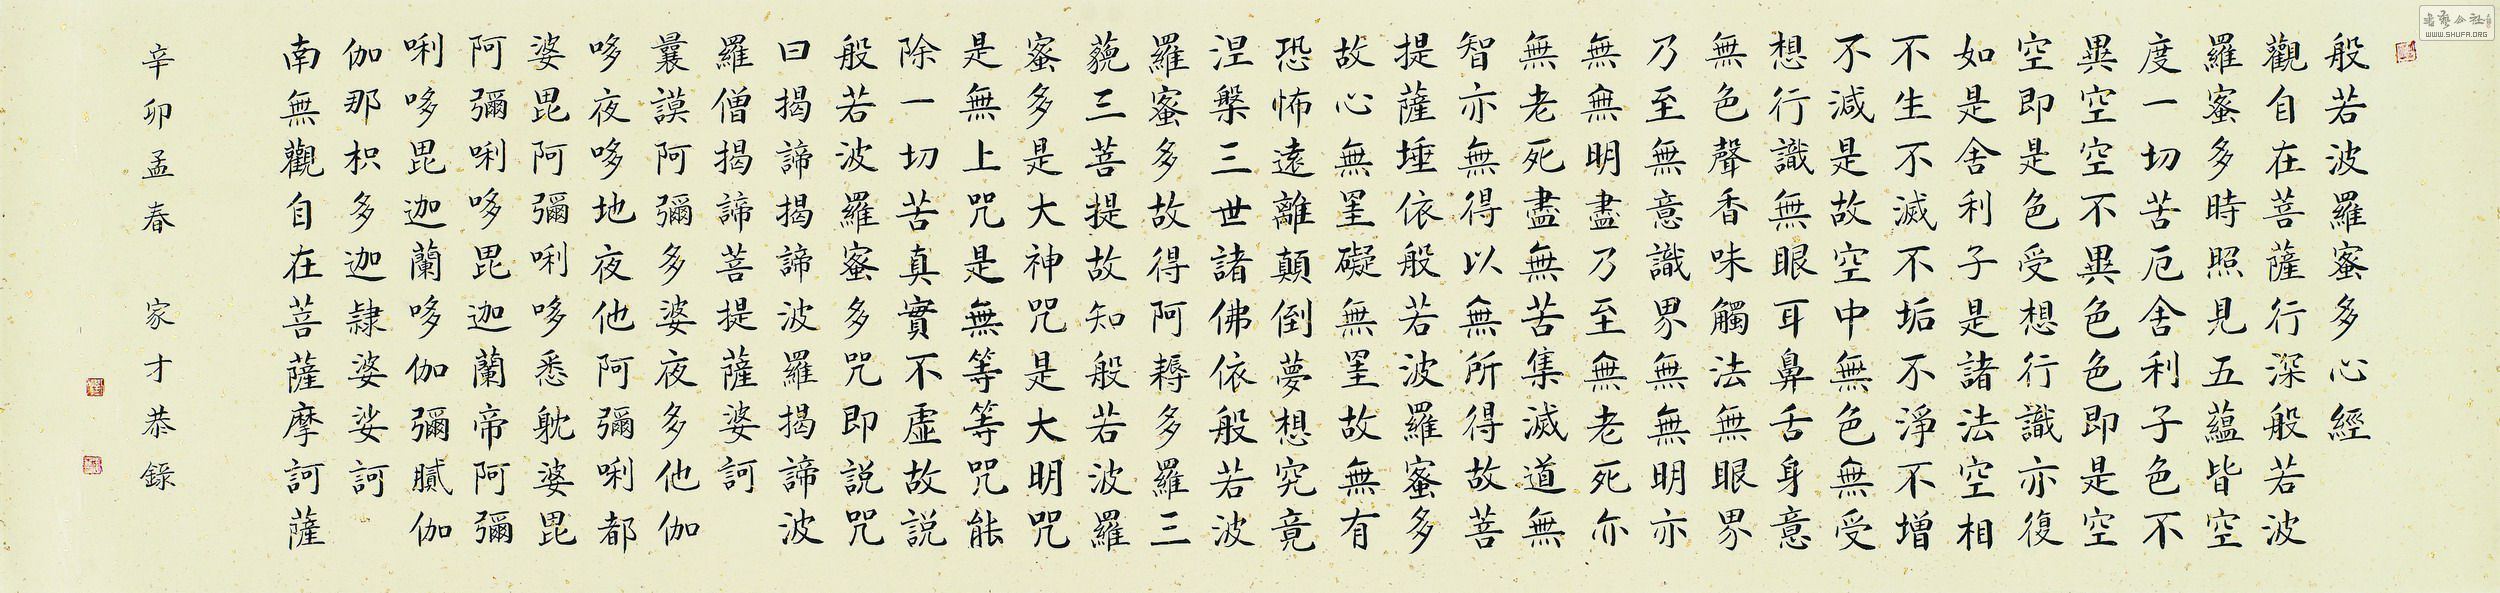 般若波羅蜜多心經
觀自在菩薩行深般若波
羅蜜多時照見五蘊皆空
度一切苦厄舍利子色不
異空空不異色色即是空
空即是色受想行識亦復
如是舍利子是諸法空相
不生不滅不垢不淨不增
不減是故空中無色無受
想行識無眼耳鼻舌身意
無色聲香味觸法無眼界
乃至無意識界無無明亦
無無明盡乃至無老死亦
無老死盡無苦集滅道無
智亦無得以無所得故菩
提薩埵依般若波羅蜜多
故心無罣礙無罣故無有
恐怖遠離顛倒夢想究竟
涅槃三世諸佛依般若波
羅蜜多故得阿耨多羅三
藐三菩提故知般若波羅
蜜多是大神咒是大明咒
是無上咒是無等等咒能
除一切苦真實不虛故説
般若波羅蜜多咒即説咒
曰揭諦揭諦波羅揭諦波
羅僧揭諦菩提薩婆訶
曩謨阿彌多婆夜多他伽
哆夜哆地夜他阿彌唎都
婆毘阿彌唎哆悉躭婆毘
阿彌唎哆毘迦蘭帝阿彌
唎哆毘迦蘭哆伽彌膩伽
伽那枳多迦隸婆娑訶
南無觀自在菩薩摩訶薩
辛卯孟春 家才恭錄
書藝公社
WWW.SHUFA.ORG